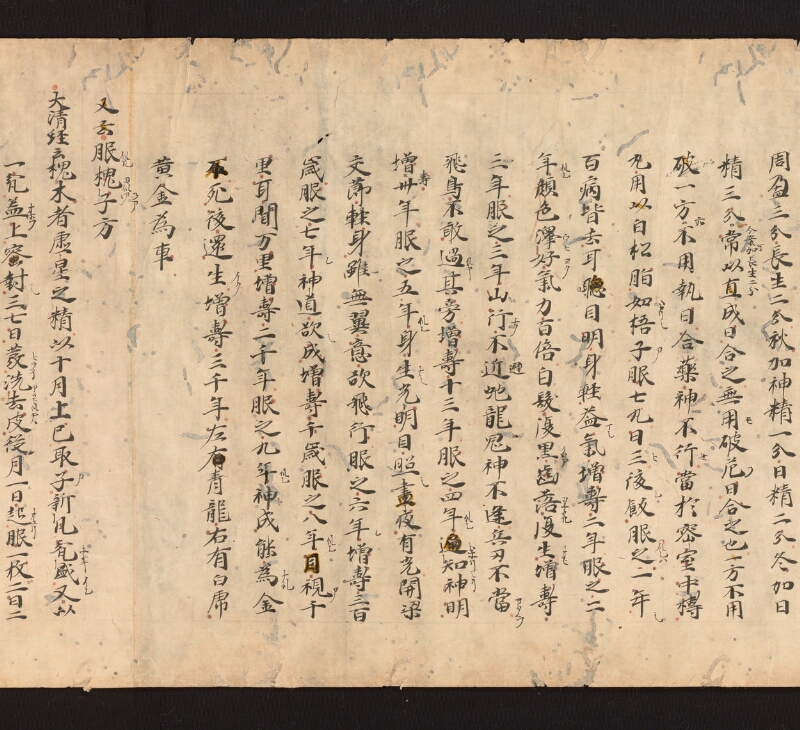 周盈三分長生二分秋加神精一分日精二分冬加日
精三分常以直成日合之無用破厄日合之也一方不用
破一方不用執日合藥神不行當於密室中搗
丸用以白松脂如梧子服七丸日三後飯服之一年
百病皆去耳聰目明身輕益氣增壽二年服之二
年顔色澤好氣力百倍白髮復黒齒落復生增壽
三年服之三年山行不近虵龍鬼神不逢兵刃不當
飛鳥不敢過其旁增壽十三年服之四年遍知神明
增卌年服之五年身生光明目照晝夜有光開梁
交節軽身雖無翼意欲飛行服之六年增壽三百
歲服之七年神道欲成增壽千歲服之八年目視千
里耳聞万里增壽二千年服之九年神成能為金
不死後還生增壽三千年左右青龍右有白虎
黄金為車
又云服槐子方
大清経云槐木者虚星之精以十月上巳取子新凡瓮盛又以
一瓮益上密封三七日發洗去皮従月一日起服一枚二日二